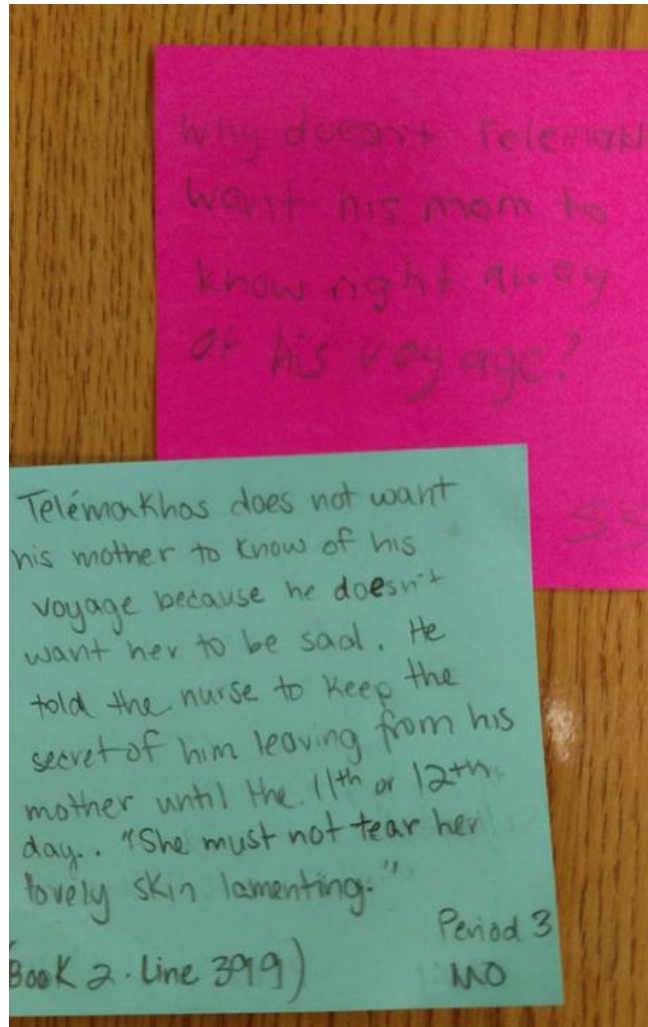 Why doesn't Telémakh
want his mom to
know right away
of his voyage?
SS
Telémakhos does not want
his mother to know of his
voyage because he doesn't
want her to be sad. He
told the nurse to keep the
secret of him leaving from his
mother until the 11th or 12th
day.. "She must not tear her
lovely skin lamenting."
(Book 2. Line 399)
Period 3
MO